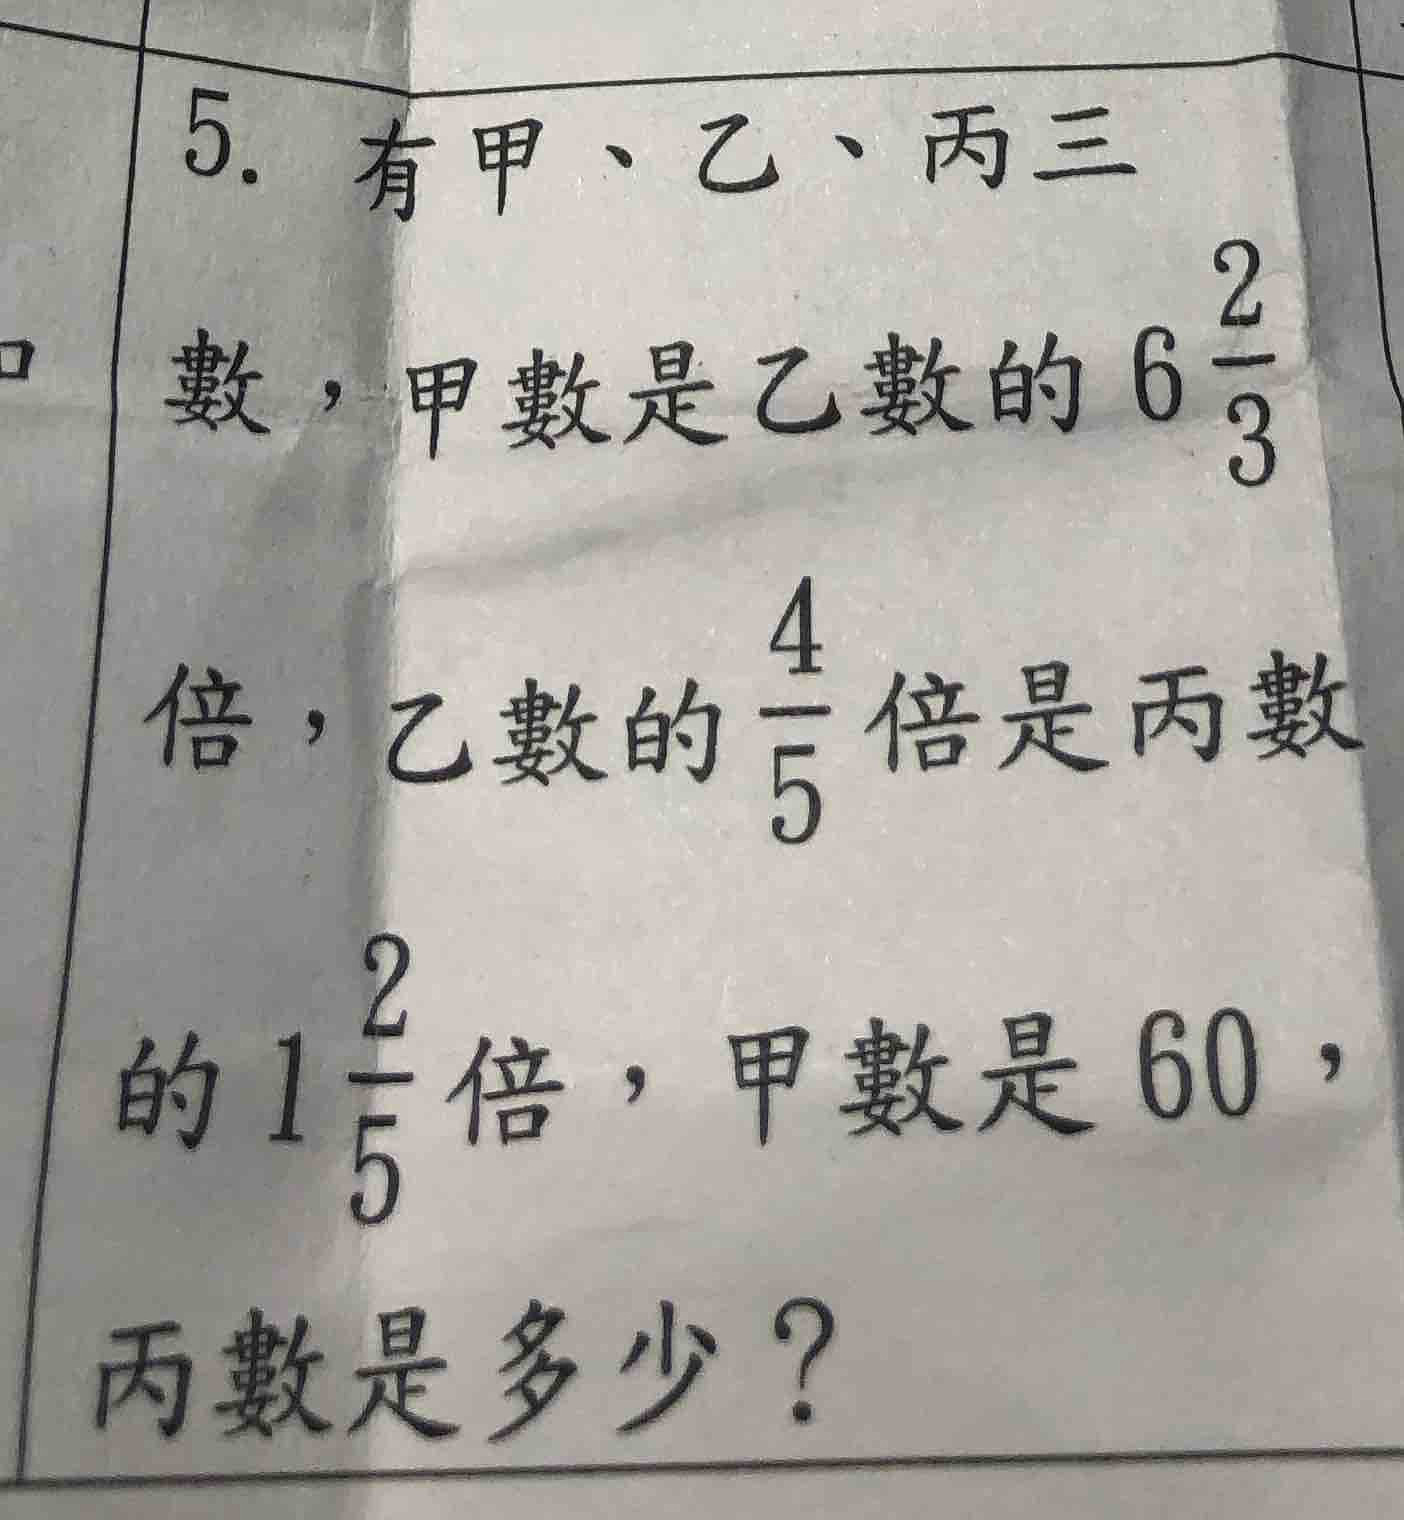 5. 有甲、乙、丙三
數,甲數是乙數的 6 2/3
倍,乙數的 4/5 倍是丙數
的 1 2/5 倍,甲數是 60,
丙數是多少?